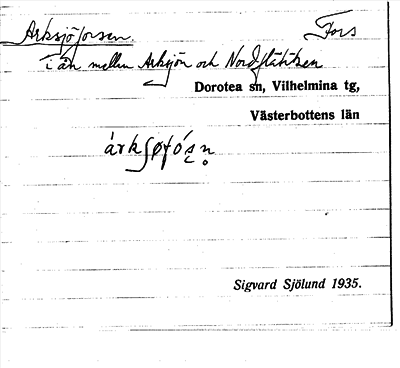 Arksjöforsen. Fors
i ån mellan Arksjön och Nordflåtiken
Dorotea sn, Vilhelmina tg,
Västerbottens län
Sigvard Sjölund 1935.